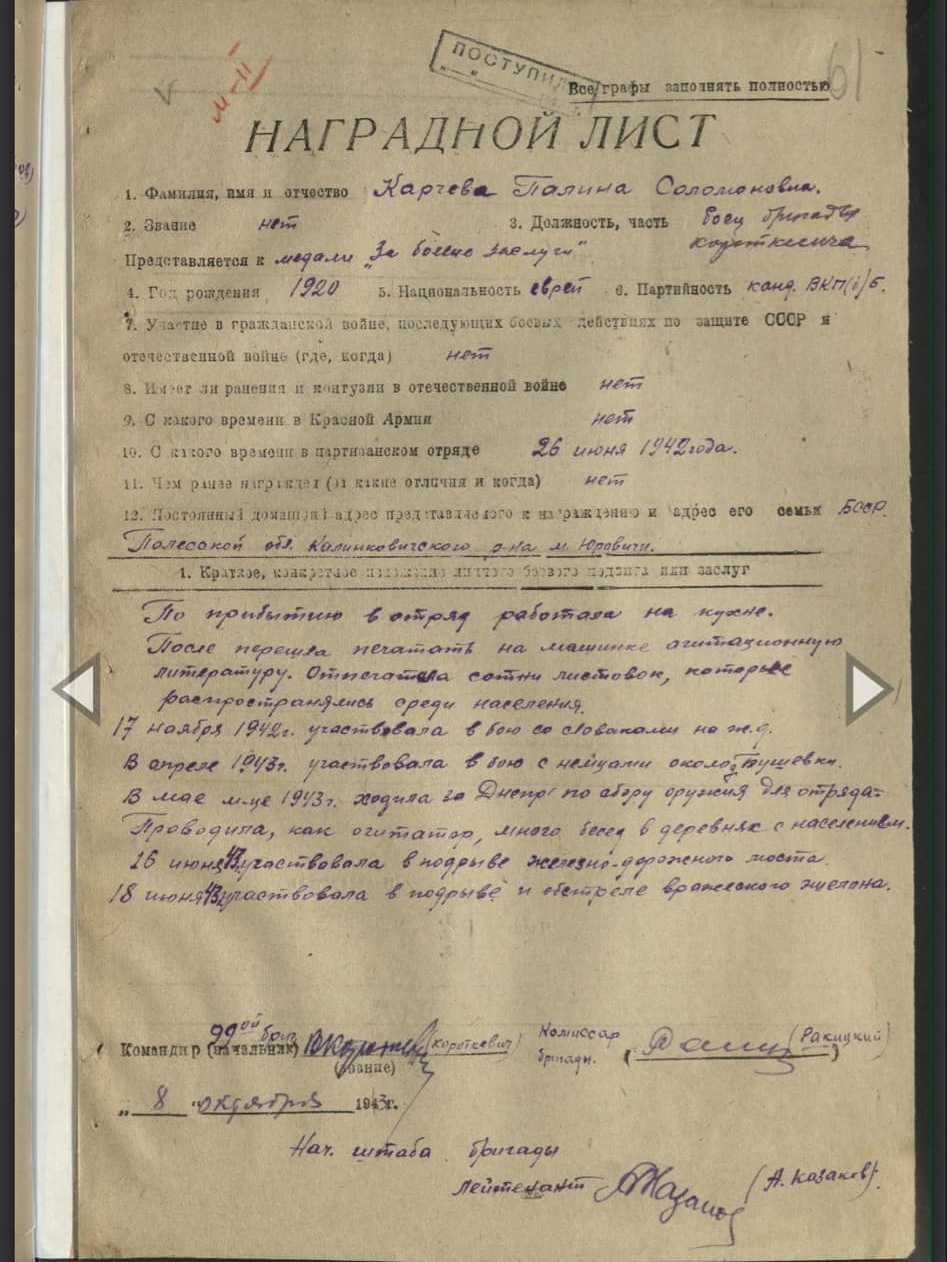 61
М-11
ПОСТУПИЛ
Все графы заполнять полностью
НАГРАДНОЙ ЛИСТ
1. Фамилия, имя и отчество Карчева Полина Соломоновна.
2. Звание нет 3. Должность, часть боец бригады
Короткевича
Представляется к медали „За боевые заслуги"
4. Год рождения 1920 5. Национальность еврей 6. Партийность канд. ВКП(б)Б.
7. Участие в гражданской войне, последующих боевых действиях по защите СССР и
отечественной войне (где, когда) нет
8. Имеет ли ранения и контузии в отечественной войне нет
9. С какого времени в Красной Армии нет
10. С какого времени в партизанском отряде 26 июня 1942 года.
11. Чем ранее награжден (за какие отличия и когда) нет
12. Постоянный домашний адрес представляемого к награждению и адрес его семьи БССР.
Полесской обл. Калинковичского р-на м. Юровичи.
1. Краткое, конкретное изложение личного боевого подвига или заслуг
По прибытию в отряд работала на кухне.
После перешла печатать на машинке агитационную
литературу. Отпечатала сотни листовок, которые
распространялись среди населения.
17 ноября 1942г. участвовала в бою со словаками на ж.д.
В апреле 1943г. участвовала в бою с немцами около
В мае м-це 1943г. ходила за Днепр по сбору оружия для отряда.
Проводила, как агитатор, много бесед в деревнях с населением.
16 июня 43 участвовала в подрыве железно-дорожного моста.
18 июня 43 участвовала в подрыве и обстреле вражеского эшелона.
99ой бриг.
Командир (начальник) (Короткевич) Комиссар (Ракицкий)
(звание) бригады.
„ 8 " октября 1943г.
Нач. штаба бригады
лейтенант (А. Казаков).